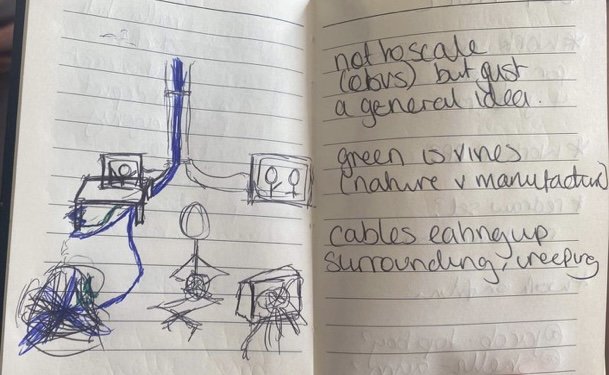 not to scale
(obvs) but just
a general idea.
green is vines
(nature v manufacture)
cables eating up
surrounding, creeping